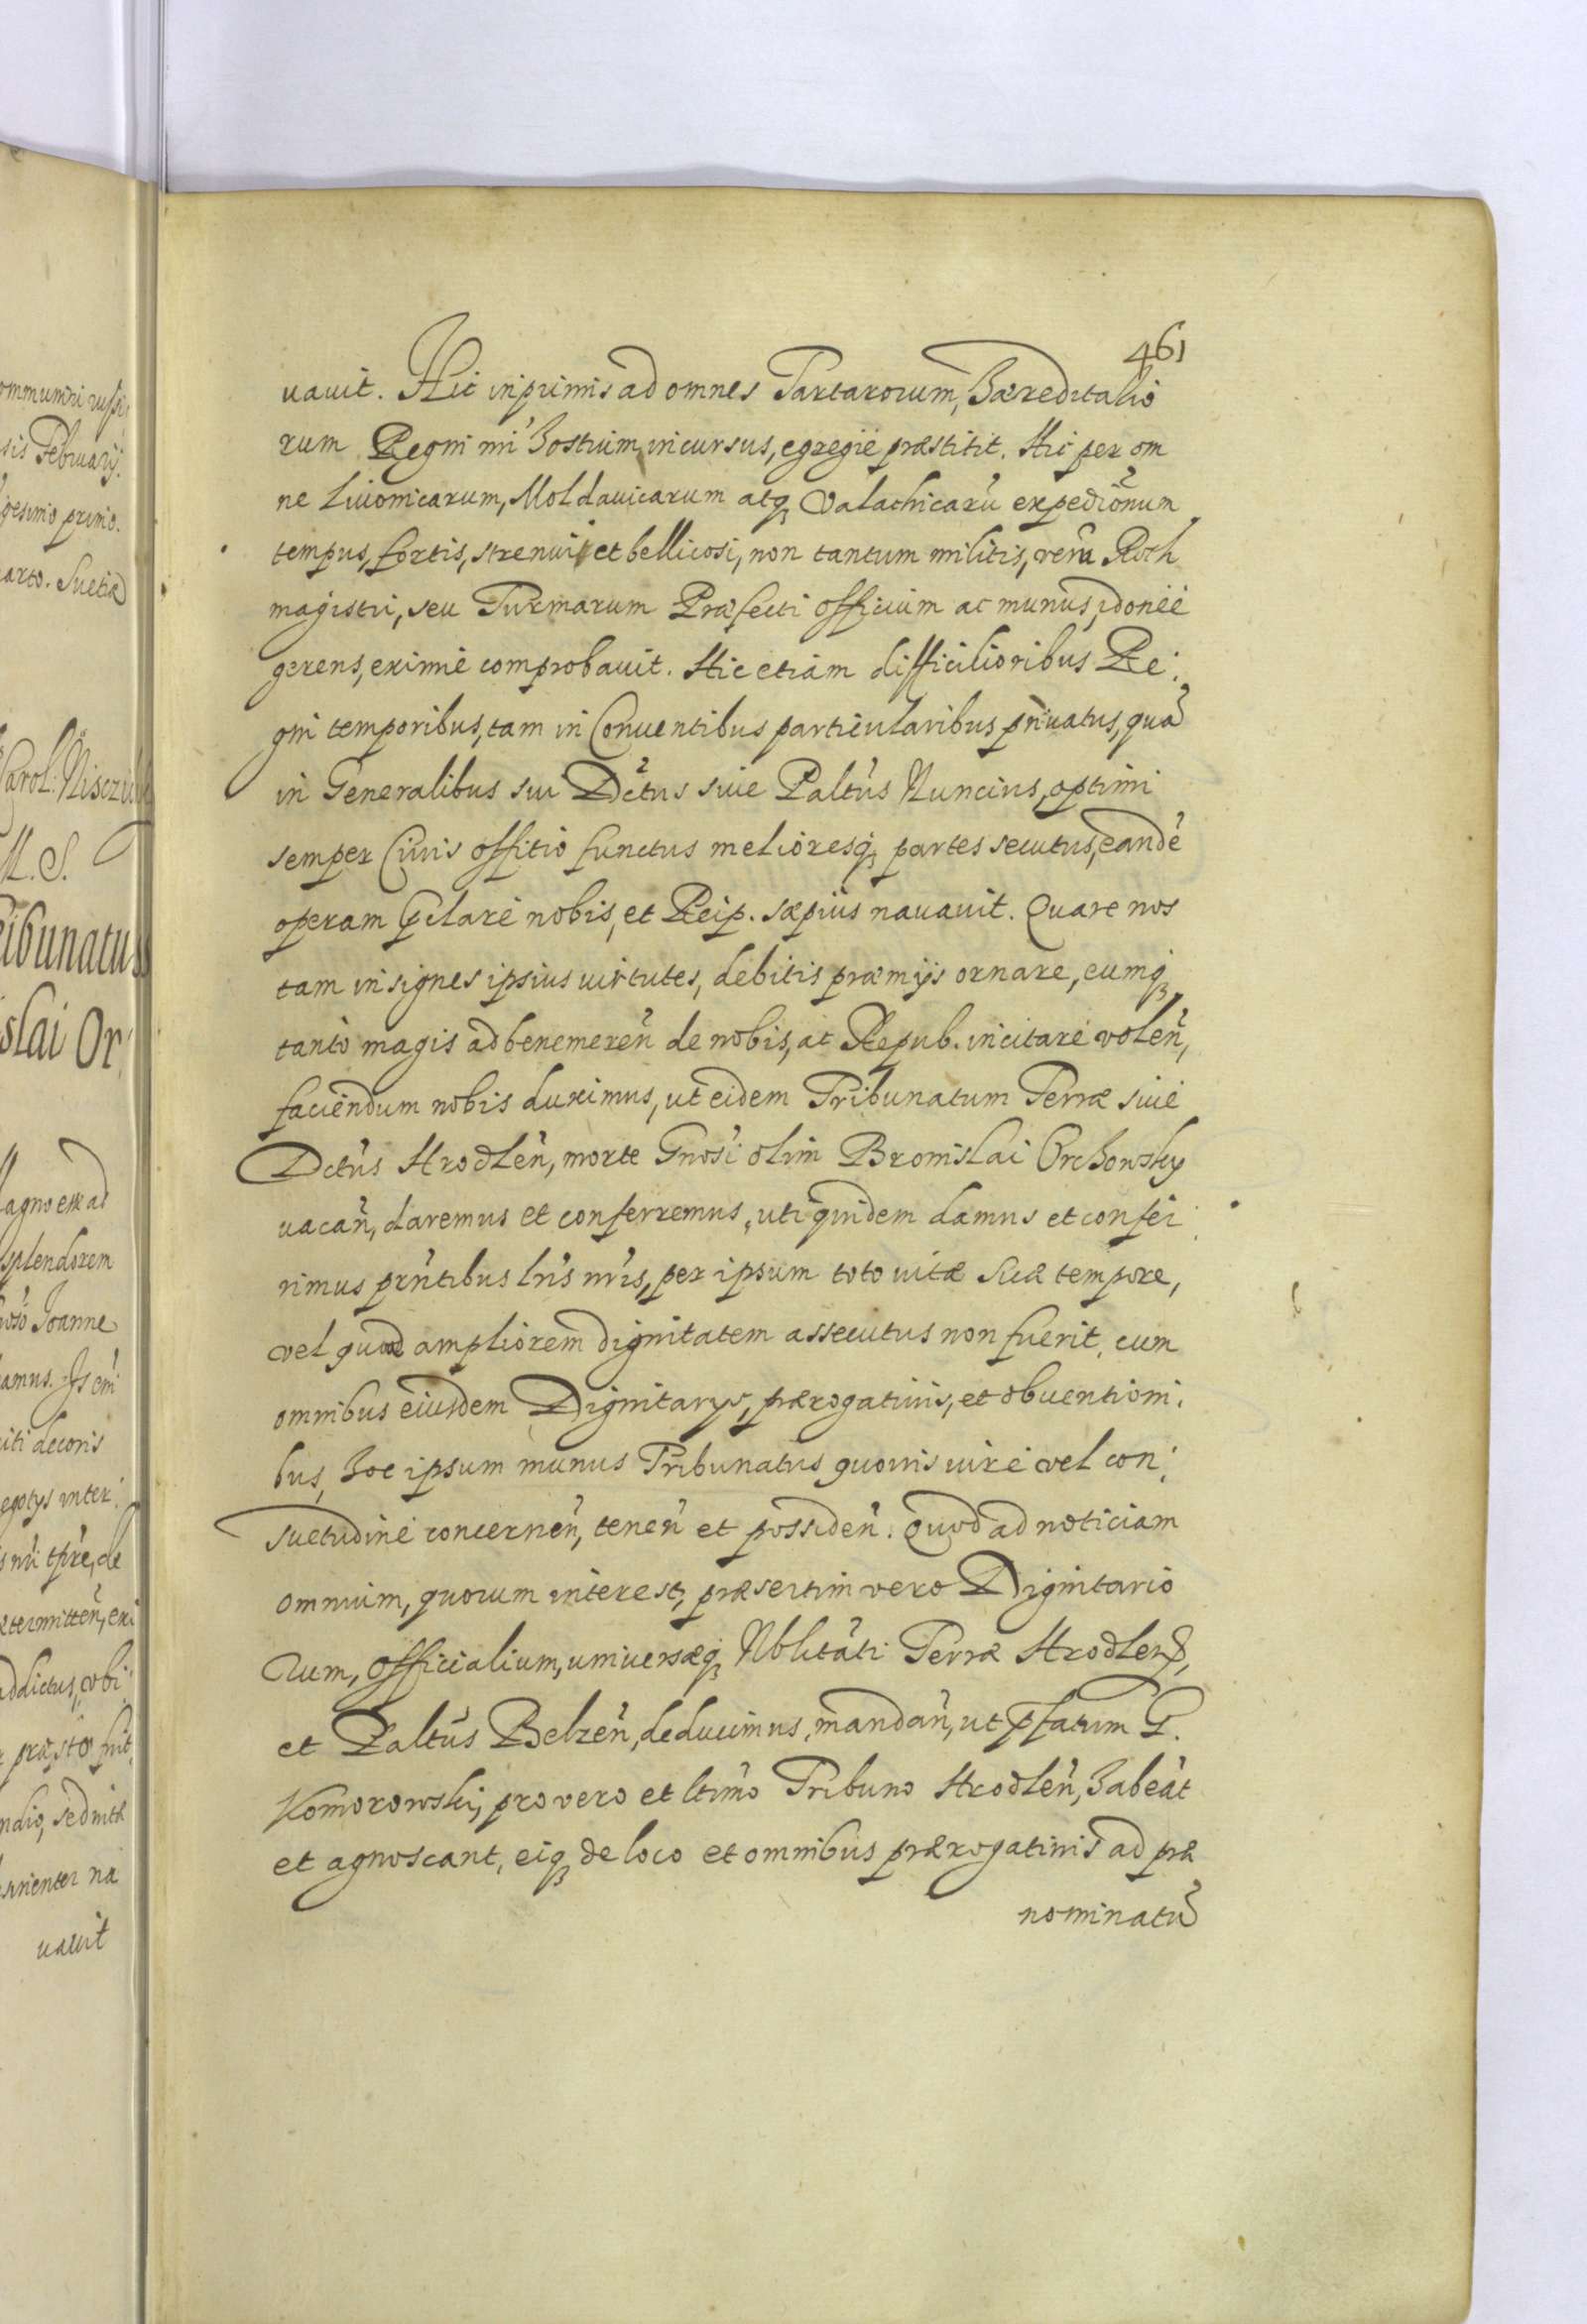 461
uauit. Hic inprimis ad omnes Tartarorum, Haereditario
rum Regni nri hostium, incursus, egregiè praestitit. Hic per om
ne Liuonicarum, Moldauicarum atq Valachicarũ expediõnum
tempus, fortis, strenui et bellicosi, non tantum militis, verũ Roth
magistri, seu Turmarum Praefecti officium ac munus, idoneè
gerens, eximiè comprobauit. Hic etiam difficilioribus Re:
gni temporibus, tam in Conuentibus particularibus priuatus, quã
in Generalibus sui Dctus siue Paltus Nuncius, optimi
semper Ciuis offitio functus melioresq partes secutus, eandẽ
operam nobis, et Reip. saepius nauauit. Quare nos
tam insignes ipsius uirtutes, debitis praemijs ornare, eumq
tantò magis ad benemereñ de nobis, ac Repub. incitare voleñ,
faciendum nobis duximus, ut eidem Tribunatum Terrae siue
Dctus Hrodleñ, morte Gnosi olim Bronislai Orchowsky
uacañ, daremus et conferremus, uti quidem damus et confer
rimus pñtibus lris nris, per ipsum toto uitae suae tempore,
vel quoad ampliorem dignitatem assecutus non fuerit, cum
omnibus eiusdem Dignitarys, praerogatiuis, et obuentioni:
bus, hoc ipsum munus Tribunatus quouis iure vel con:
suetudine concerneñ, teneñ et possideñ. Quod ad noticiam
omnium, quorum interest, praesertim vero Dignitario
rum, Officialium, uniuersaeq Nblitati Terrae Hrodlens,
et Paltus Belzeñ, deducimus, mandañ, ut pfatum G.
Komorowski, pro vero et ltimo Tribuno Hrodleñ, habeãt
et agnoscant, eiq de loco et omnibus praerogatiuis ad prae
nominatũ